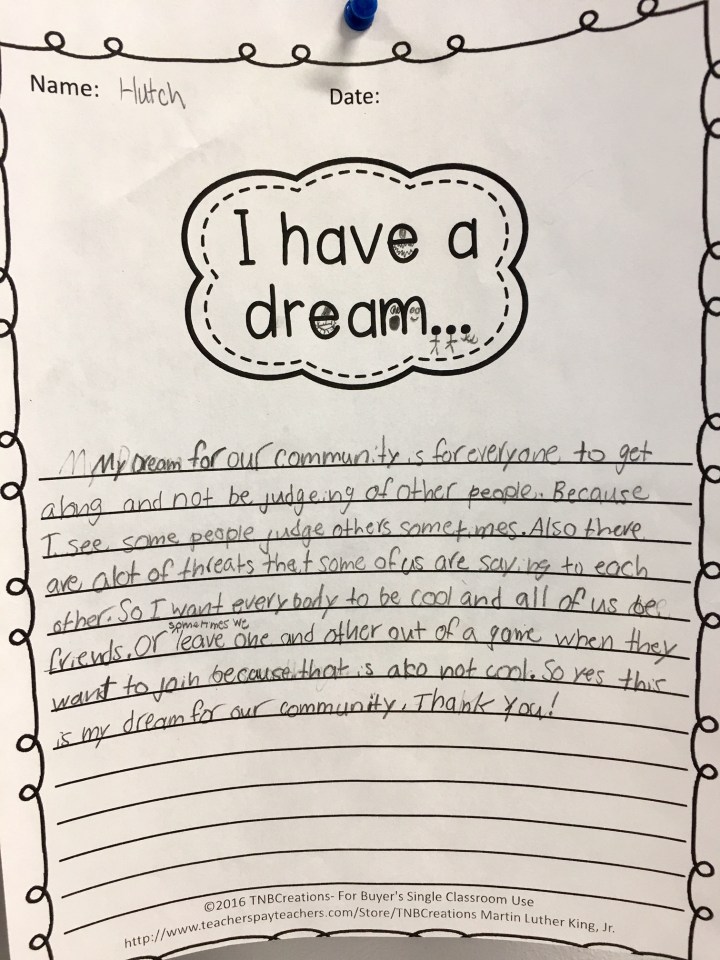 Name: Hutch
Date:
I have a
dream...
My Dream for our community is for everyone to get
along and not be judgeing of other people. Because
I see some people judge others sometimes. Also there
are alot of threats that some of us are saying to each
other. So I want everybody to be cool and all of us be
sometimes we
friends. Or leave one and other out of a game when they
want to join because that is also not cool. So yes this
is my dream for our community. Thank you!
©2016 TNBCreations- For Buyer's Single Classroom Use
http://www.teacherspayteachers.com/Store/TNBCreations Martin Luther King, Jr.